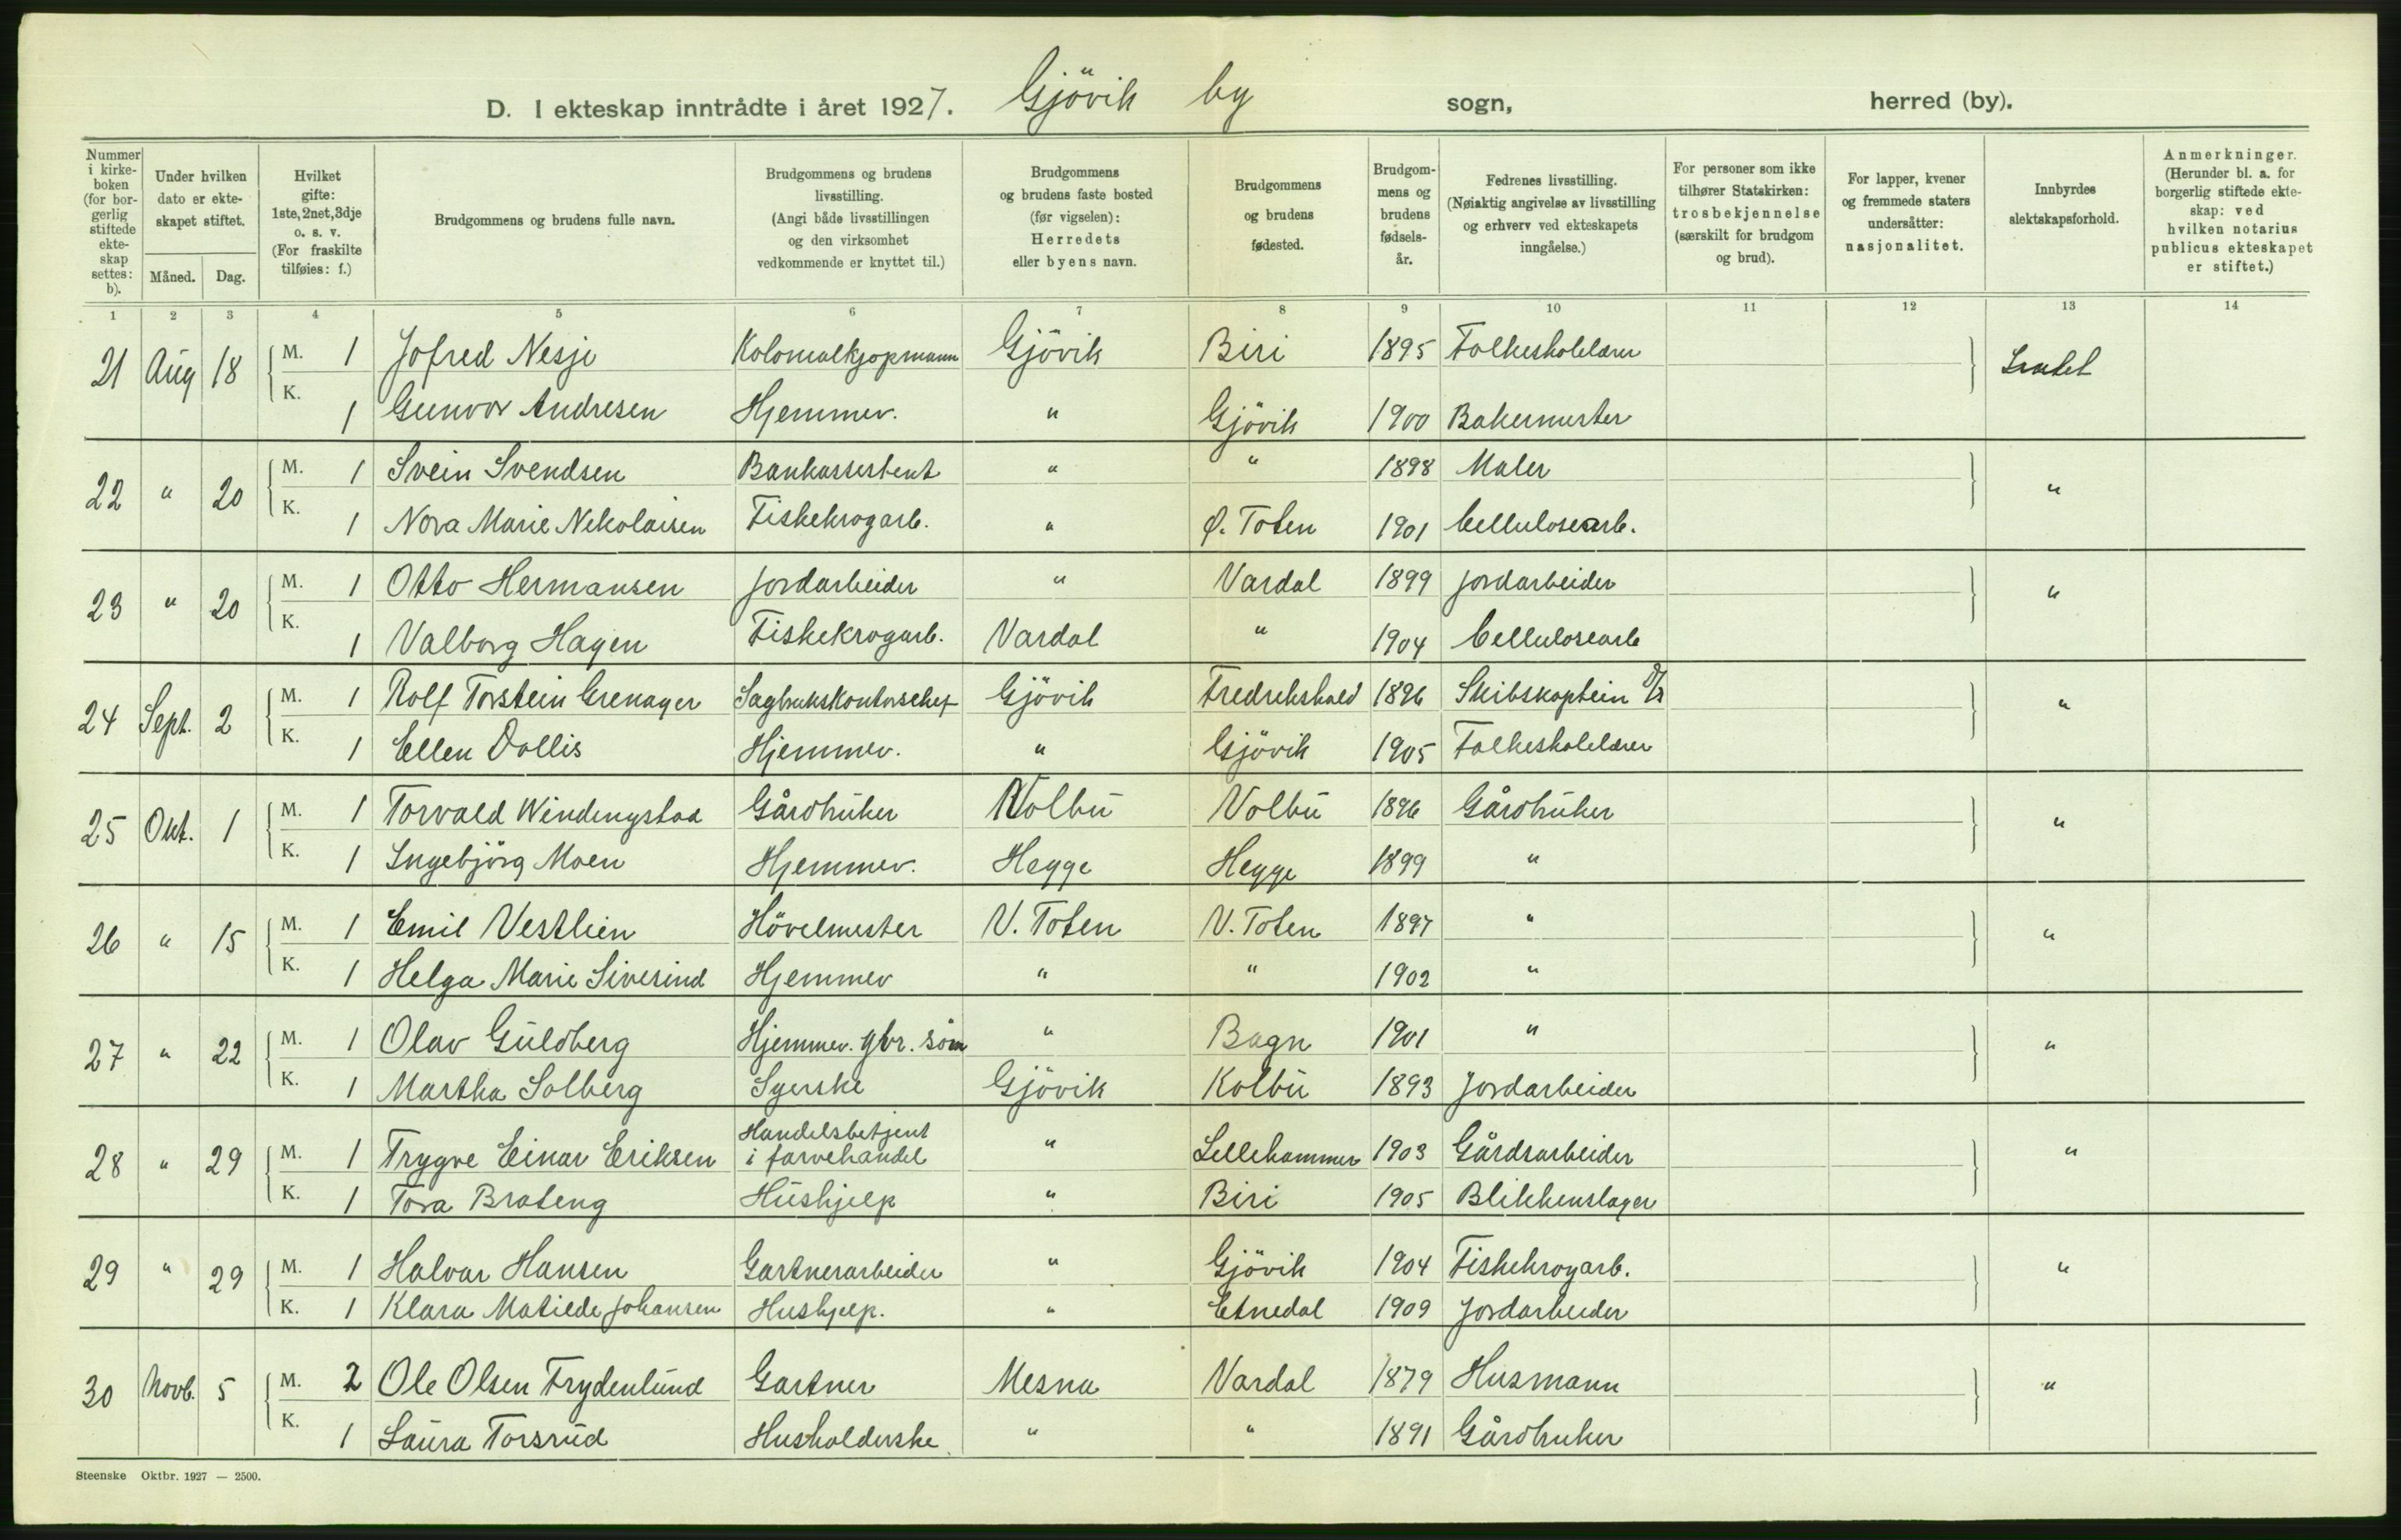 D. I ekteskap inntrådte i året 1927. Gjövik by sogn, herred (by).
Nummer i kirkeboken (for borgerlig stiftede ekteskap settes: b). | Under hvilken dato er ekteskapet stiftet. Måned. Dag. | Hvilket gifte: 1ste, 2net, 3dje o. s. v. (For fraskilte tilføies: f.) | Brudgommens og brudens fulle navn. | Brudgommens og brudens livsstilling. (Angi både livsstillingen og den virksomhet vedkommende er knyttet til.) | Brudgommens og brudens faste bosted (før vigselen): Herredets eller byens navn. | Brudgommens og brudens fødested. | Brudgommens og brudens fødselsår. | Fedrenes livsstilling. (Nøiaktig angivelse av livsstilling og erhverv ved ekteskapets inngåelse.) | For personer som ikke tilhører Statskirken: trosbekjennelse (særskilt for brudgom og brud). | For lapper, kvener og fremmede staters undersåtter: nasjonalitet. | Innbyrdes slektskapsforhold. | Anmerkninger. (Herunder bl. a. for borgerlig stiftede ekteskap: ved hvilken notarius publicus ekteskapet er stiftet.)
1 2 3 4 5 6 7 8 9 10 11 12 13 14
21 Aug 18 M. 1 Jofred Nesje Kolonialkjøpmann Gjövik Biri 1895 Folkeskolelærer Intet
K. 1 Gunvor Andresen Hjemmev. " Gjövik 1900 Bakermester
22 " 20 M. 1 Svein Svendsen Bankassistent " " 1898 Maler "
K. 1 Nora Marie Nikolaisen Fiskekrogarb. " Ø. Toten 1901 Cellulosearb.
23 " 20 M. 1 Otto Hermansen Jordarbeider " Vardal 1899 Jordarbeider "
K. 1 Valborg Hagen Fiskekrogarb. Vardal " 1904 Cellulosearb
24 Sept. 2 M. 1 Rolf Torstein Grenager Sagbrukskontorschef Gjövik Fredrikshald 1896 Skibskaptein "
K. 1 Ellen Dollis Hjemmev. " Gjövik 1905 Folkeskolelærer
25 Okt. 1 M. 1 Torvald Windingstad Gårdbruker Volbu Volbu 1896 Gårdbruker "
K. 1 Ingebjörg Moen Hjemmev. Hegge Hegge 1899 "
26 " 15 M. 1 Emil Vestlien Hövelmester V. Toten V. Toten 1897 " "
K. 1 Helga Marie Siverind Hjemmev " " 1902 "
27 " 22 M. 1 Olav Guldberg Hjemmev. gbr. sön " Bagn 1901 " "
K. 1 Martha Solberg Syerske Gjövik Kolbu 1893 Jordarbeider
28 " 29 M. 1 Trygve Einar Eriksen Handelsbetjent i farvehandel " Lillehammer 1903 Gårdsarbeider "
K. 1 Tora Brateng Hushjelp " Biri 1905 Blikkenslager
29 " 29 M. 1 Halvar Hansen Gartnerarbeider " Gjövik 1904 Fiskekrogarb. "
K. 1 Klara Matilde Johansen Hushjelp. " Etnedal 1909 Jordarbeider
30 Novb. 5 M. 2 Ole Olsen Frydenlund Gartner Mesna Vardal 1879 Husmann "
K. 1 Laura Torsrud Husholderske " " 1891 Gårdbruker
Steenske Oktbr. 1927 — 2500.